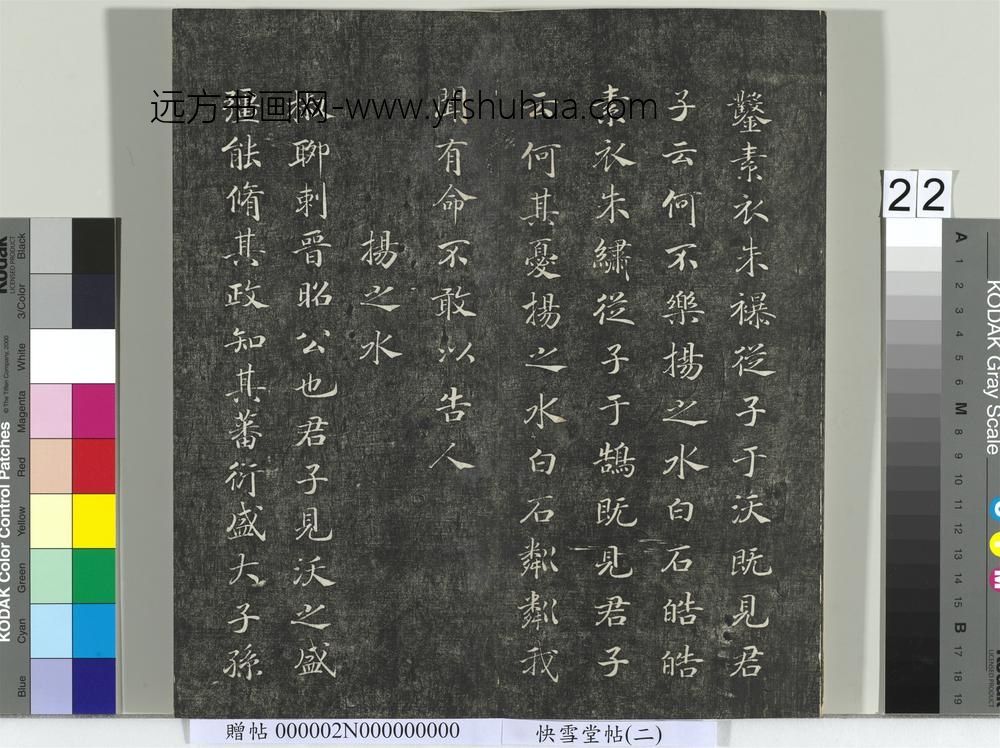 鑿素衣朱襮從子于沃既見君
子云何不樂揚之水白石皓皓
素衣朱繡從子于鵠既見君子
云何其憂揚之水白石粼粼我
聞有命不敢以告人
揚之水
椒聊刺晉昭公也君子見沃之盛
彊能脩其政知其蕃衍盛大子孫
远方书画网-www.yfshuhua.com
贈帖 000002N000000000
快雪堂帖(二)
22
KODAK Color Control Patches
© The Tiffen Company, 2000
Kodak
LICENSED PRODUCT
Blue
Cyan
Green
Yellow
Red
Magenta
White
3/Color
Black
KODAK Gray Scale
A 1 2 3 4 5 6 M 8 9 10 11 12 13 14 15 B 17 18 19